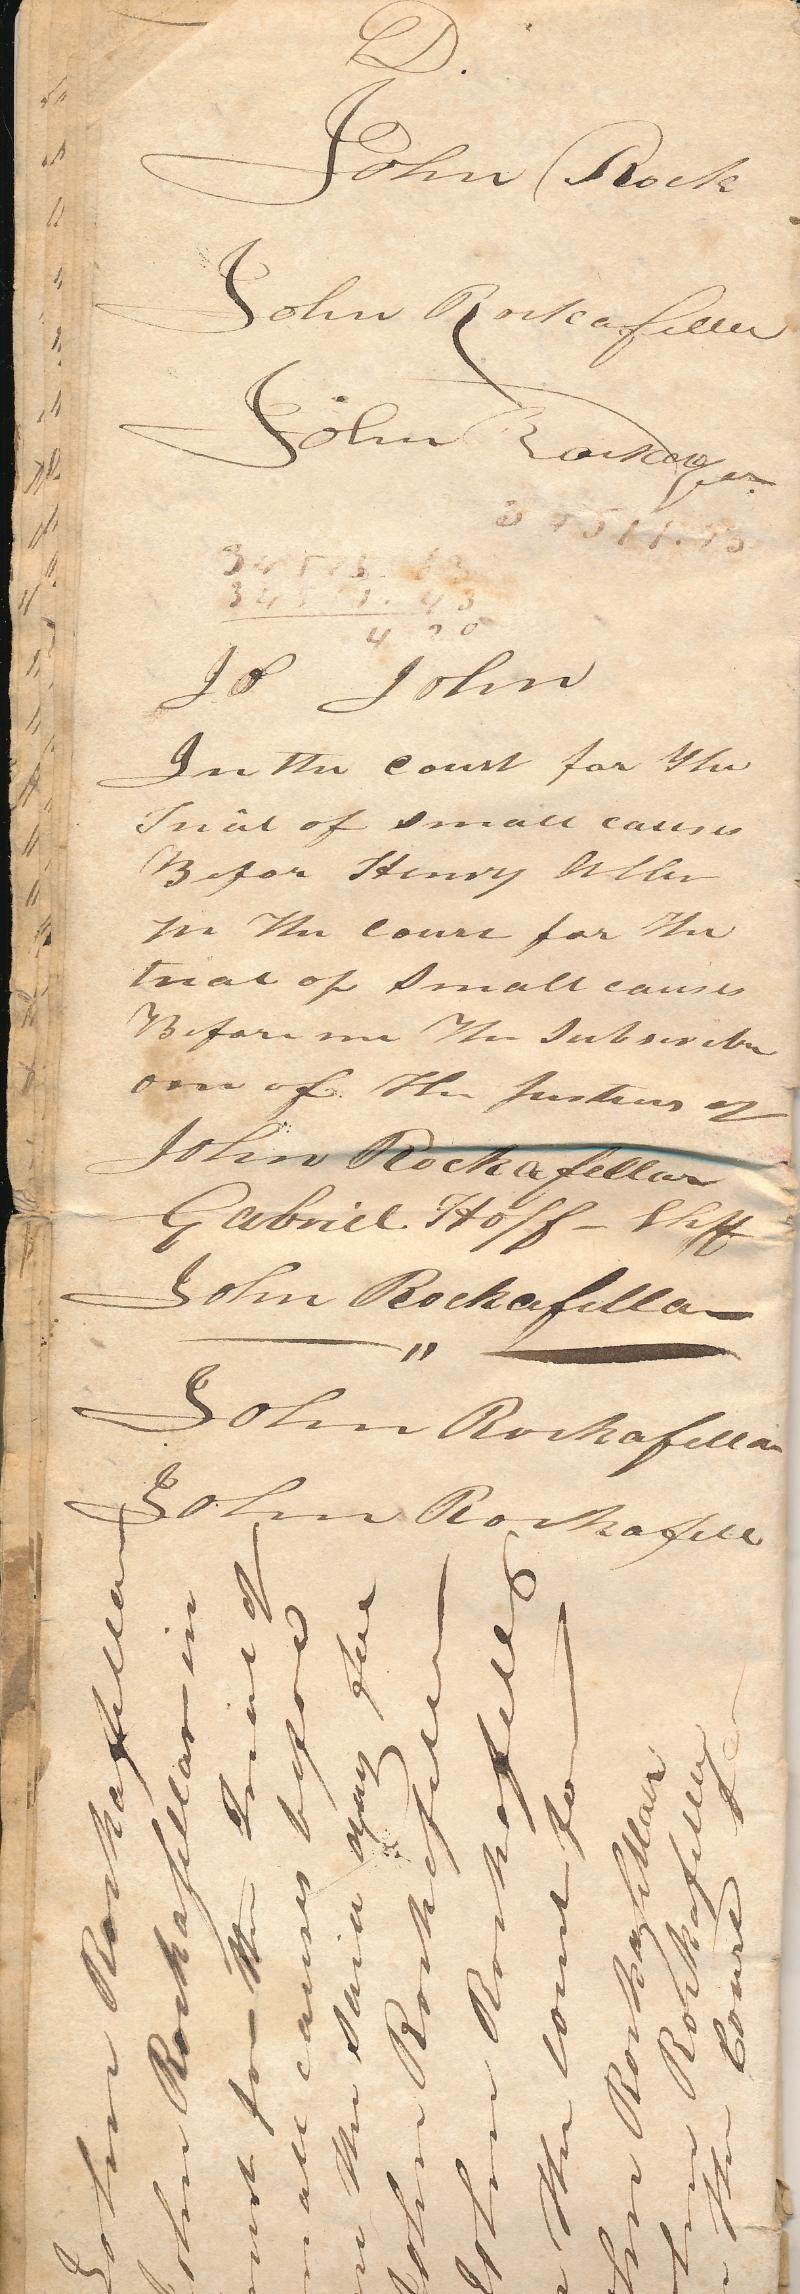 D.
John Rock
John Rockafeller
John Rockafer
34511.43
4 20
Jo John
In the court for the
Trial of small causes
Befor Henry
in the court for the
trial of small causes
Before me the subscriber
one of the Justices of
John Rockafellar
Gabriel Hoff - Shff
John Rockafellar
"
John Rockafellar
John Rockafell
John Rockafellar
John Rockafellar in
for the Trial of
causes before
the said
John Rockafeller
John Rockafeller
the court for
John Rockafellar
John Rockafeller
the Court for